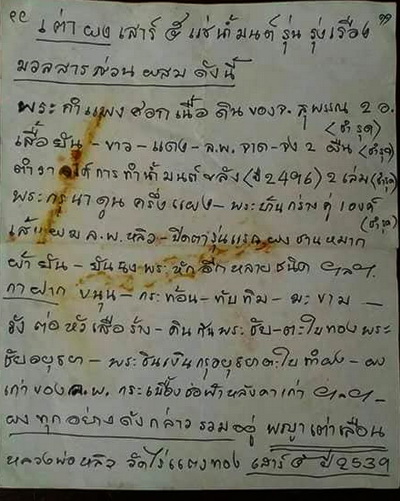 ๙๙ ๑๑
เต่า ผง เสาร์ ๕ แช่น้ำมนต์ รุ่น รุ่งเรือง
มวลสารส่วนผสม ดังนี้
พระกำแพงศอก เนื้อดิน ของ จ. สุพรรณ 2 อ.
(ชำรุด)
เสื้อยันต์ - ขาว - แดง - ล.พ. จาด - จง 2 ผืน (ชำรุด)
ตำรา การทำน้ำมนต์ ขลัง (ปี 2496) 2 เล่ม (ชำรุด)
พระ กรุ นาดูน ครึ่งแผง - พระหันกร่าง คู่ องค์
(ชำรุด)
ล.พ. หลิว - ปิดตารุ่นแรก ผง ชานหมาก
ผ้ายันต์ - พระ หัก อีก หลายชนิด ฯลฯ
กาฝาก ขนุน - กระท้อน - ทับทิม - มะขาม -
รัง ต่อ หัวเสือร้าง - ดิน กันพระ ชัย - ตะไบทอง พระ
ชัยอยุธยา - พระชินเงินกรุอยุธยาตะไบ ทำผง - ผง
เก่า ของ ล.พ. กระเบื้องช่อฟ้าหลังคาเก่า ฯลฯ -
ผง ทุกอย่างดังกล่าว รวมอยู่ พญาเต่าเลือน
หลวงพ่อ หลิว วัดไร่แตงทอง เสาร์ ๕ ปี 2539